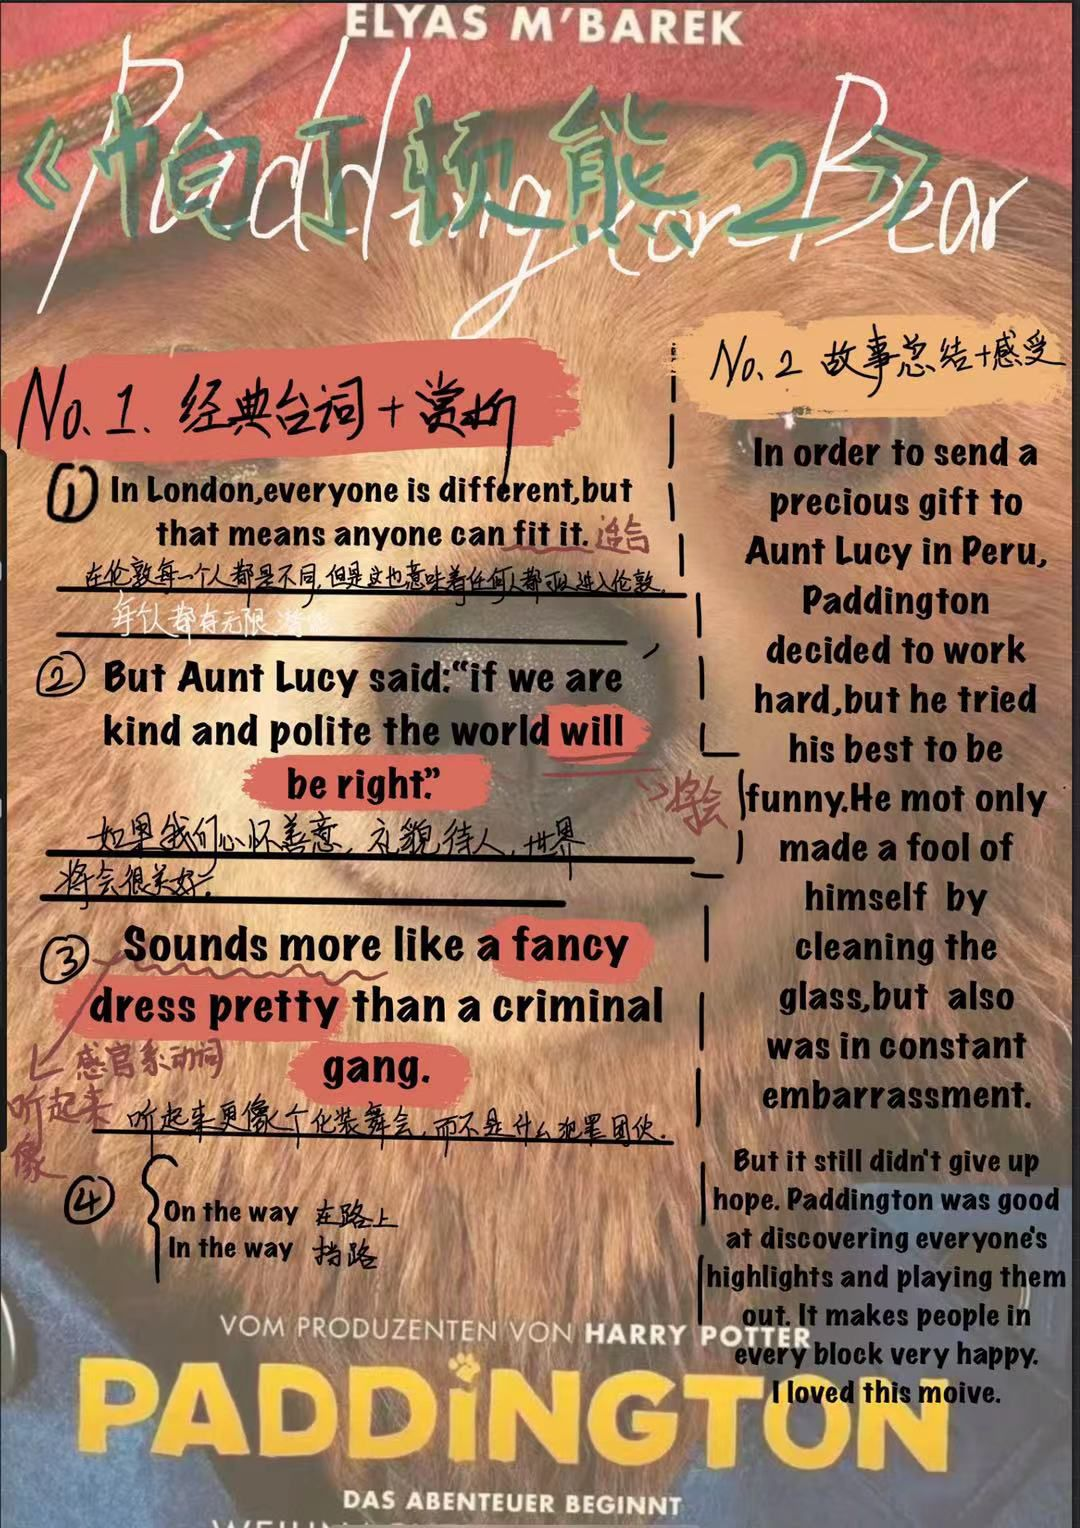 ELYAS M'BAREK
Paddington Bear
《帕丁顿熊2》
No.1. 经典台词+赏析
① In London,everyone is different,but
that means anyone can fit it. 适合
在伦敦每一个人都是不同,但是这也意味着任何人都可以进入伦敦.
每个人都有无限
② But Aunt Lucy said:“if we are
kind and polite the world will
be right.”
将会
如果我们心怀善意,礼貌待人,世界
将会很美好.
③ Sounds more like a fancy
dress pretty than a criminal
gang.
感官系动词
听起来
像
听起来更像个化装舞会,而不是什么犯罪团伙.
④ On the way 在路上
In the way 挡路
No.2 故事总结+感受
In order to send a
precious gift to
Aunt Lucy in Peru,
Paddington
decided to work
hard,but he tried
his best to be
funny.He mot only
made a fool of
himself by
cleaning the
glass,but also
was in constant
embarrassment.
But it still didn't give up
hope. Paddington was good
at discovering everyone's
highlights and playing them
out. It makes people in
every block very happy.
I loved this moive.
VOM PRODUZENTEN VON HARRY POTTER
PADDiNGTON
DAS ABENTEUER BEGINNT